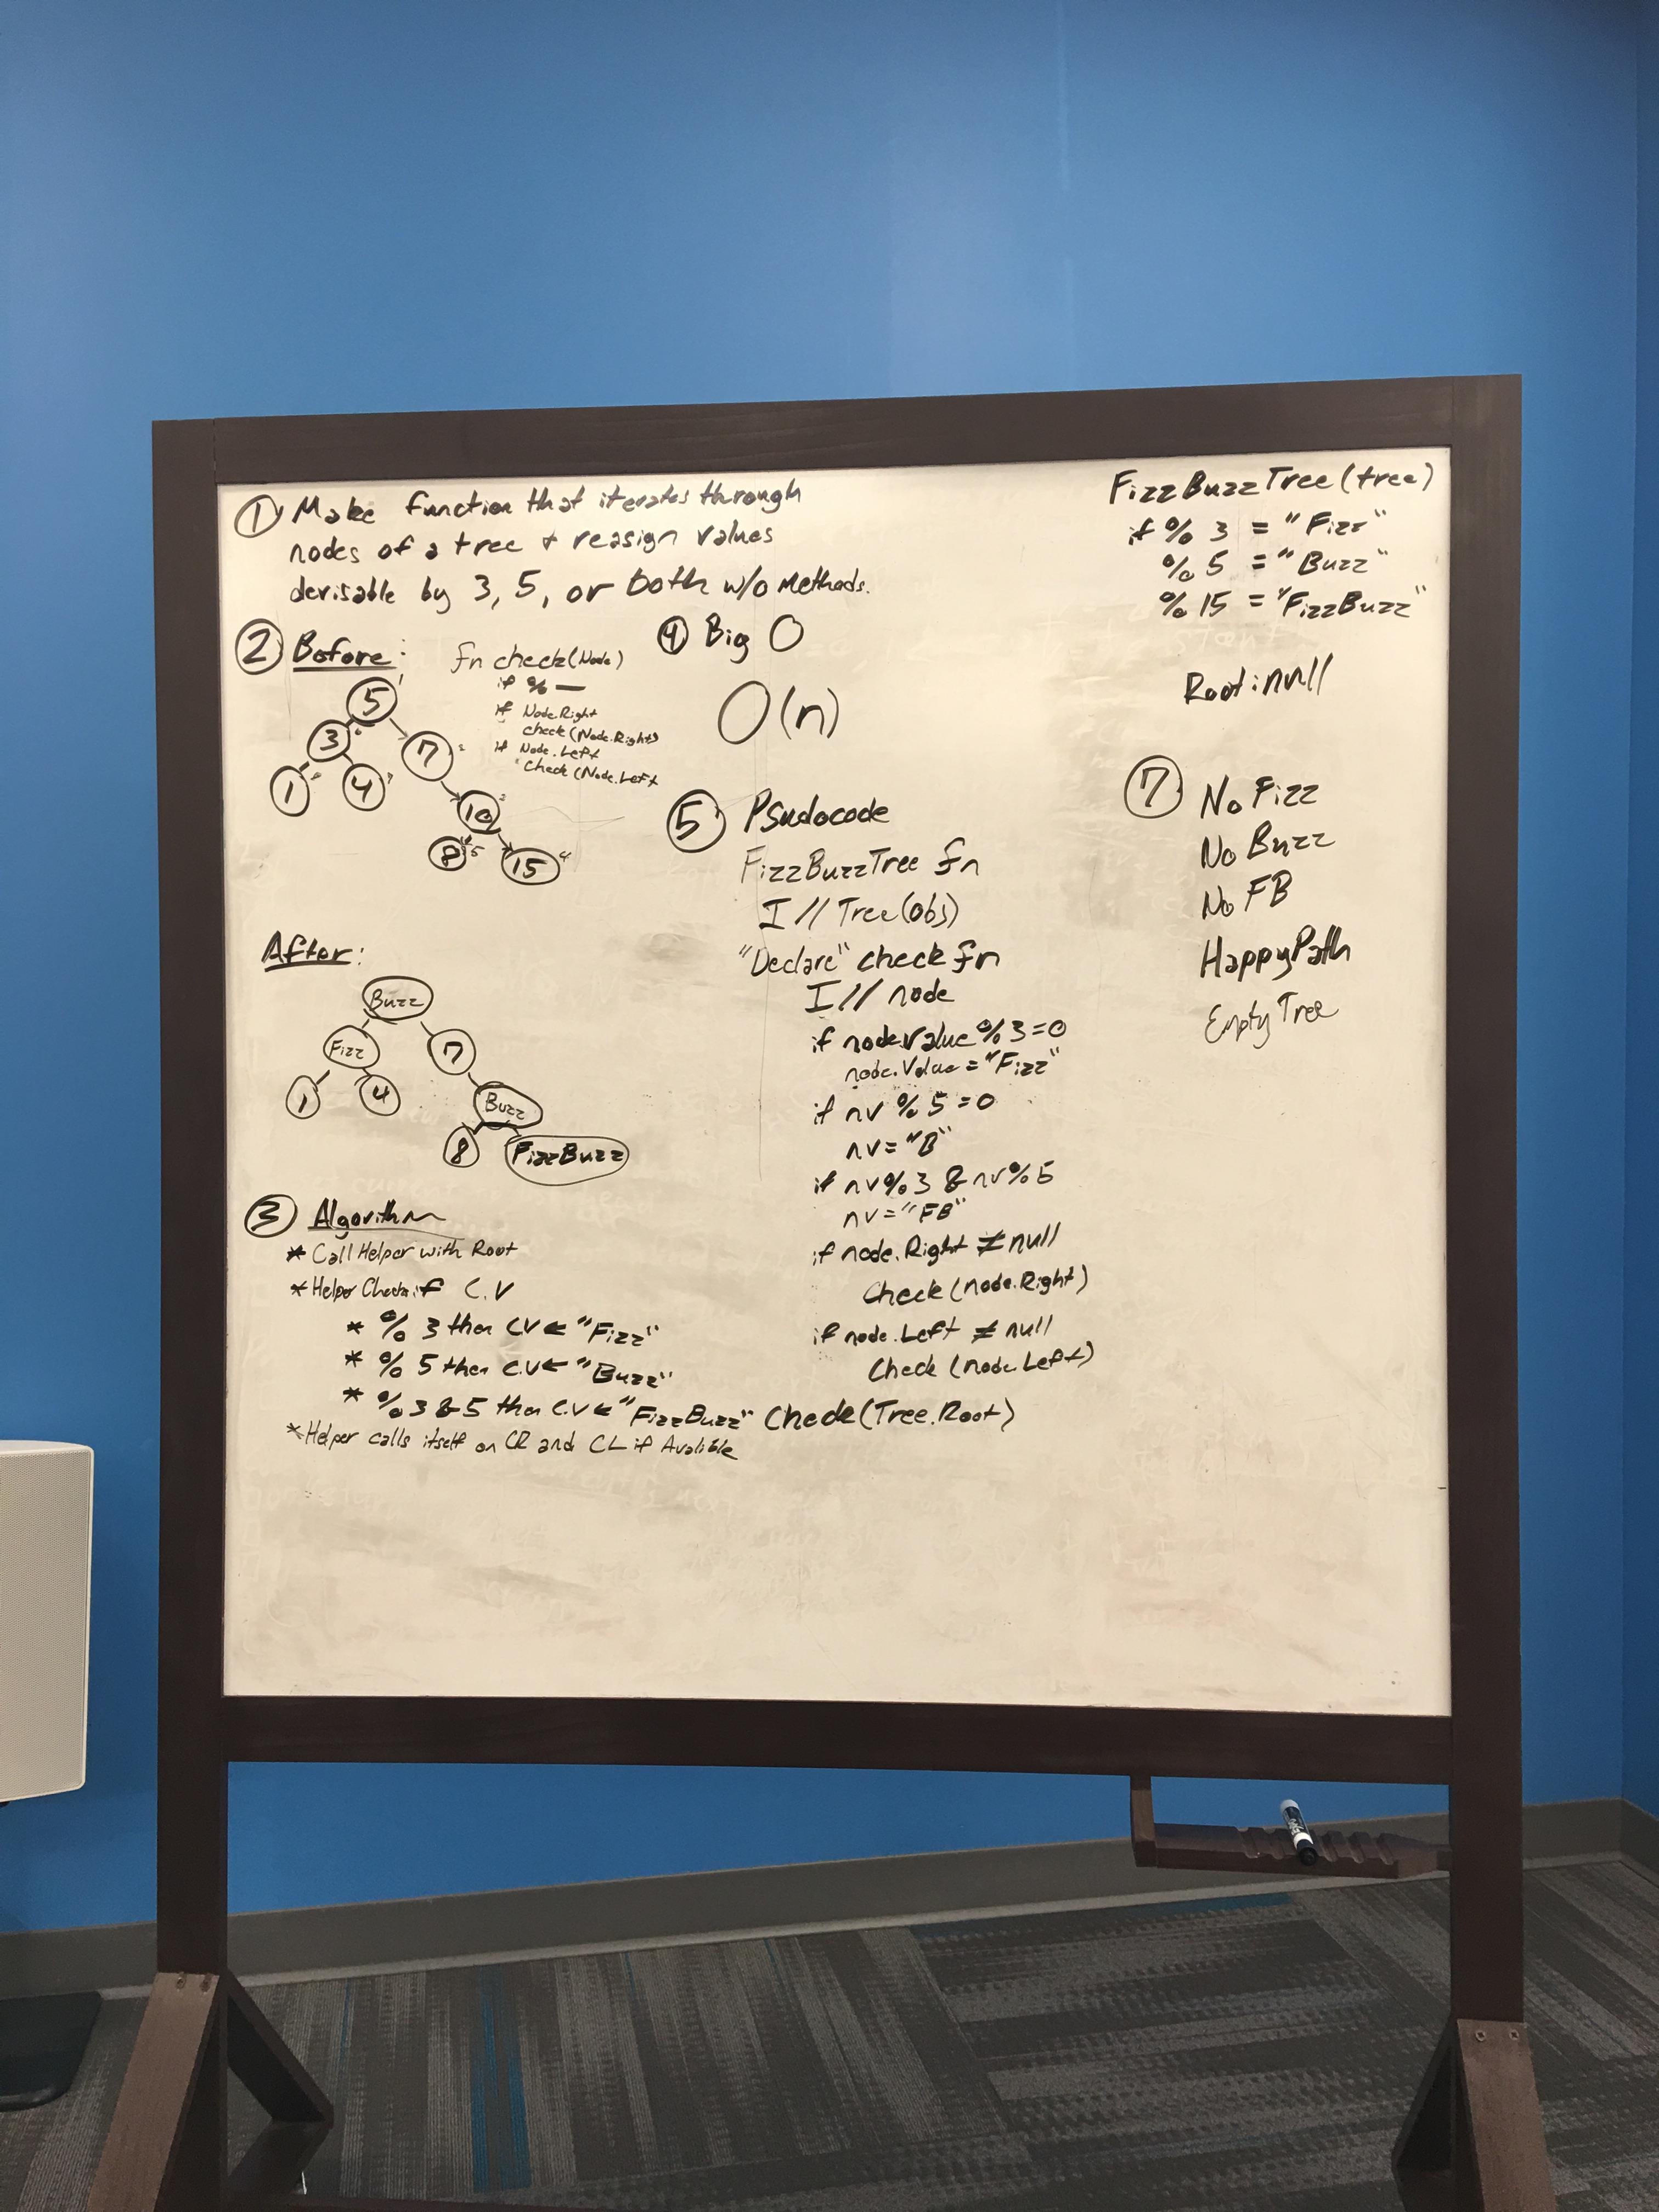 ① Make function that iterates through
nodes of a tree + reasign values
devisable by 3, 5, or both w/o Methods.
② Before:
5
3
7
1
4
10
8
15
fn check(Node)
if % —
if Node.Right
check(Node.Right)
if Node.Left
check(Node.Left
After:
Buzz
Fizz
7
1
4
Buzz
8
FizzBuzz
③ Algorithm
* Call Helper with Root
* Helper Checks if C.V
* % 3 then CV ← "Fizz"
* % 5 then C.V ← "Buzz"
* % 3 & 5 then C.V ← "FizzBuzz"
* Helper calls itself on CR and CL if Avalible
④ Big O
O(n)
⑤ Psudocode
FizzBuzzTree fn
I // Tree(obs)
"Declare" check fn
I // node
if node.value % 3=0
node.Value = "Fizz"
if nv % 5 =0
nv = "B"
if nv%3 & nv%5
nv = "FB"
if node.Right ≠ null
Check(node.Right)
if node.Left ≠ null
Check(node.Left)
Check(Tree.Root)
FizzBuzzTree(tree)
if % 3 = "Fizz"
% 5 = "Buzz"
% 15 = "FizzBuzz"
Root: null
⑦ No Fizz
No Buzz
No FB
HappyPath
Empty Tree